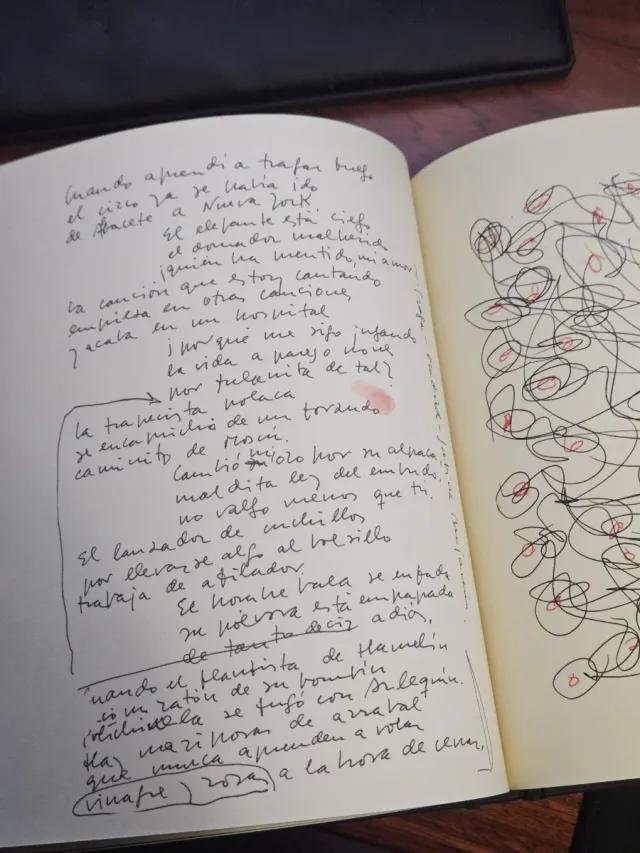 Cuando aprendí a tragar fuego
el circo ya se había ido
de Albacete a Nueva York
El elefante está ciego
el domador malherido
¡quién ha mentido, mi amor!
La canción que estoy cantando
empieza en otras canciones
y acaba en un hospital
¿por qué me sigo jugando
la vida a pares o nones
por fulanita de tal?
La trapecista polaca
se encaprichó de un
caminito de
Cambió mi oro por su alpaca
maldita ley del embudo
no valgo menos que tú.
El lanzador de cuchillos
por llevarse algo al bolsillo
trabaja de afilador.
El hombre bala se enfada
su pólvora está empapada
de tanto decir adiós,
Cuando el flautista de Hamelín
ratón de su bombín
se fugó con Arlequín.
Hay mariposas de arrabal
que nunca aprenden a volar
vinagre y rosas a la hora de cenar.